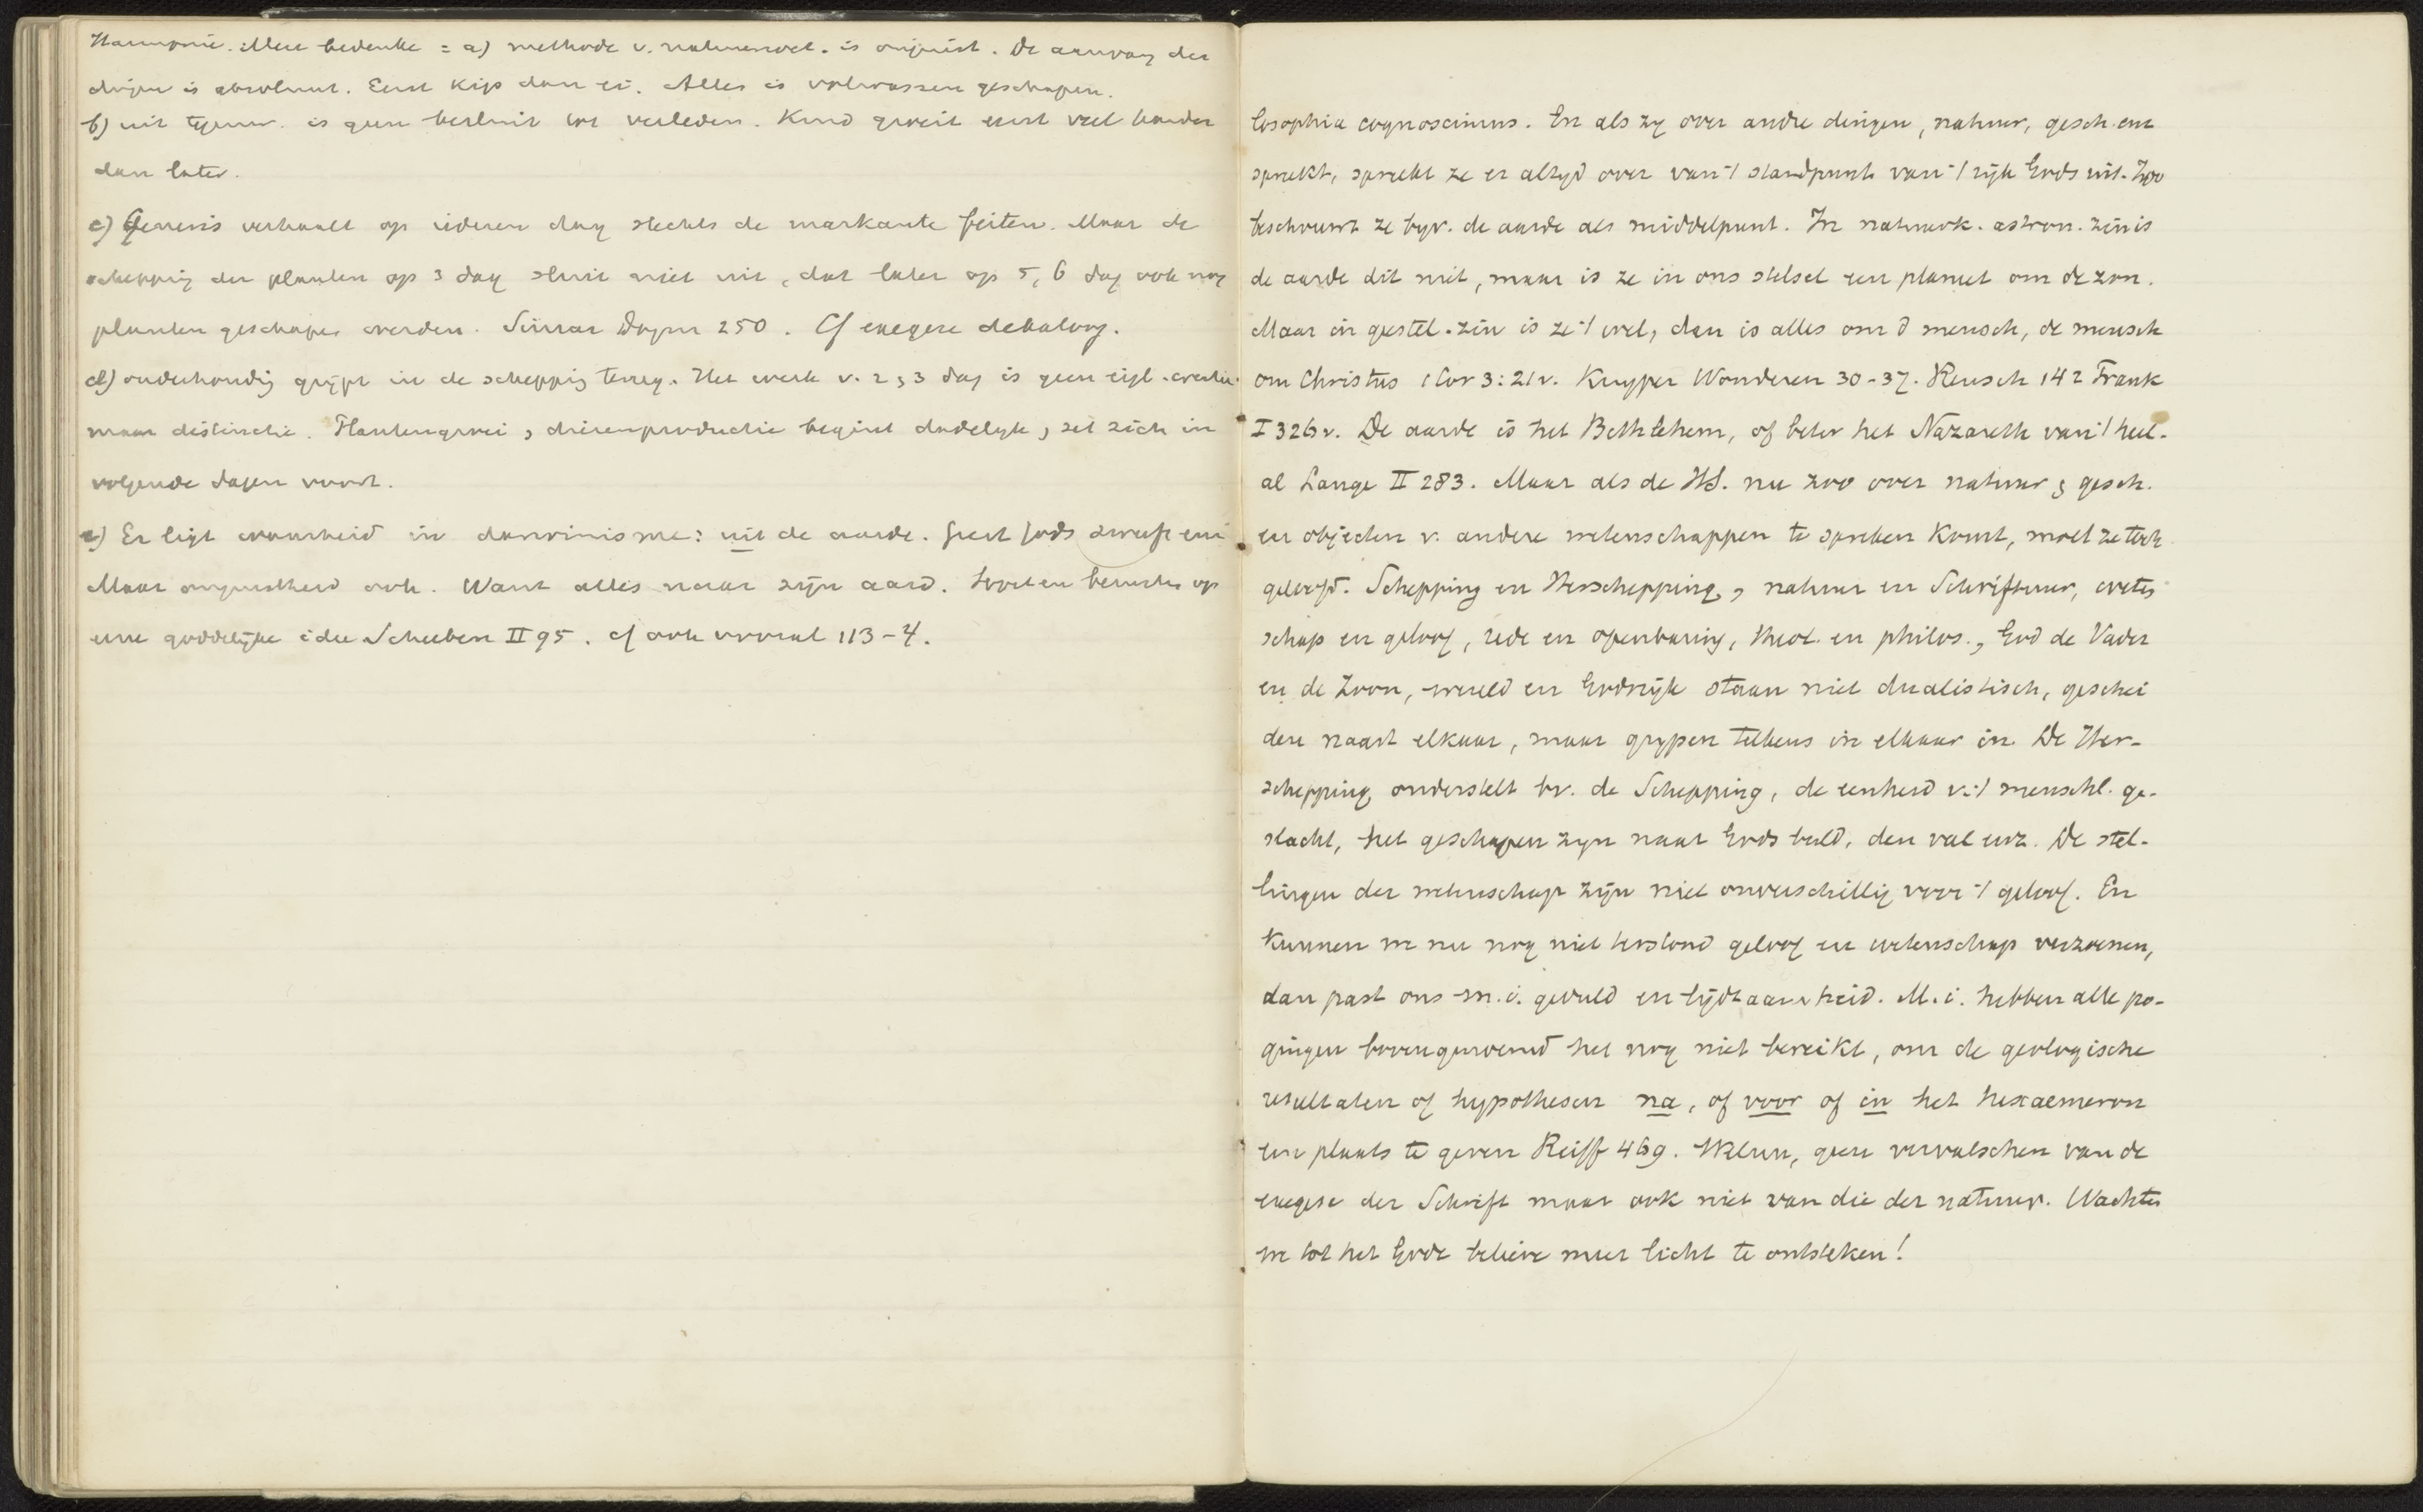 Harmonie. Men bedenke = a) methode v. natuurwet. is onjuist. De aanvang der
dingen is absoluut. Eerst kip dan ei. Alles is volwassen geschapen.
b) uit tegenw. is geen besluit tot verleden. Kind groeit eerst veel harder
dan later.
c) Genesis verhaalt op iederen dag slechts de markante feiten. Maar de
schepping der planten op 3 dag sluit niet uit, dat later op 5, 6 dag ook nog
planten geschapen werden. Simar Dogm 250. Cf exegese dekaloog.
d) onderhouding grijpt in de schepping terug. Het werk v. 2, 3 dag is geen eigl. creatie
maar distinctie. Plantengroei, dierenproductie begint dadelijk, zet zich in
volgende dagen voort.
e) Er ligt waarheid in darwinisme: uit de aarde. Geest Gods
Maar onjuistheid ook. Want alles naar zijn aard. Soorten berusten op
eene goddelijke idee Scheeben II 95. cf ook vooral 113-4.
losophia cognoscimus. En als zy over andre dingen, natuur, gesch. enz
spreekt, spreekt ze er altyd over van 't standpunt van 't rijk Gods uit. Zoo
beschouwt ze byv. de aarde als middelpunt. In natuurk. astron. zin is
de aarde dit niet, maar is ze in ons stelsel een planeet om de zon.
Maar in geestel. zin is ze 't wel, dan is alles om d mensch, de mensch
om Christus 1 Cor 3:21v. Kuyper Wonderen 30-37. Reusch 142 Frank
I 326v. De aarde is het Bethlehem, of beter het Nazareth van 't heel-
al Lange II 283. Maar als de HS. nu zoo over natuur, gesch.
en objecten v. andere wetenschappen te spreken komt, moet ze toch
geloofd. Schepping en Herschepping, natuur en Schriftuur, weten
schap en geloof, rede en openbaring, theol. en philos., God de Vader
en de Zoon, wereld en Godsrijk staan niet dualistisch, geschei
den naast elkaar, maar grypen telkens in elkaar in. De Her-
schepping onderstelt bv. de Schepping, de eenheid v. 't menschl. ge-
slacht, het geschapen zyn naar Gods beeld, den val enz. De stel-
lingen der wetenschap zijn niet onverschillig voor 't geloof. En
kunnen we nu nog niet terstond geloof en wetenschap verzoenen,
dan past ons m.i. geduld en lijdzaamheid. M.i. hebben alle po-
gingen bovengenoemd het nog niet bereikt, om de geologische
resultaten of hypothesen na, of voor of in het hexaemeron
een plaats te geven Reiff 469. Welnu, geen vervalschen van de
exegese der Schrift maar ook niet van die der natuur. Wachten
we tot het Gode believe meer licht te ontsteken!